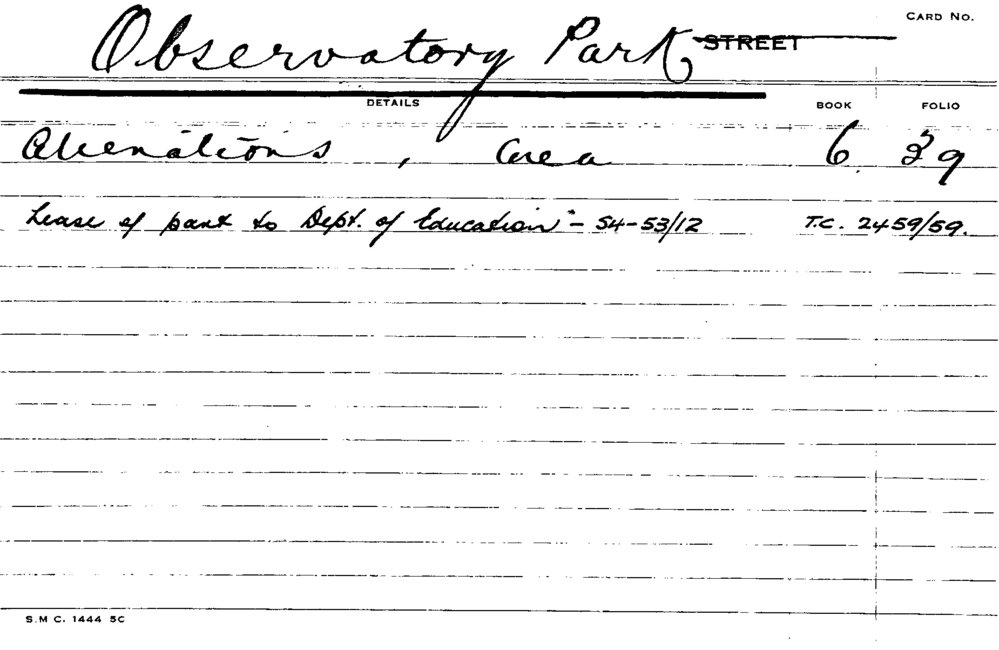 CARD NO.
Observatory Park STREET
DETAILS BOOK FOLIO
Alienations, Area 6 39
Lease of part to Dept. of Education - S4-53/12 T.C. 2459/59.
S.M C. 1444 5C